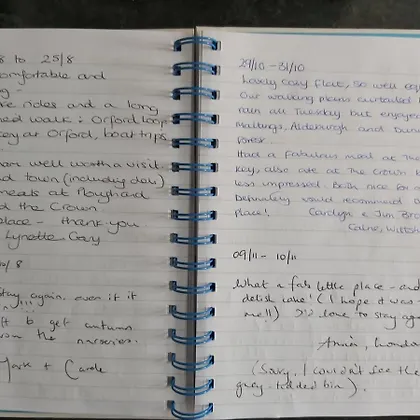 8 to 25/8
comfortable and
re rides and a long
ned walk: Orford loop
key at Orford, boat trips
well worth a visit
d town (including deli)
meals at Ploughard
d the Crown
place - thank you
Lynette, Gary
stay again, even if it
to get autumn
from the nurseries.
Mark + Carole
29/10 - 31/10
Lovely cosy flat, so well
Our walking plans curtailed
rain all Tuesday but enjoyed
Maltings, Aldeburgh and
forest.
Had a fabulous meal at The
Key, also ate at The Crown
less impressed. Both nice for
Definitely would recommend
place! Carolyn & Jim
Calne, Wiltsh
09/11 - 10/11
What a fab little place - and
delish cake! (I hope it was
me!!) I'd love to stay aga
Anna, London
(Sorry, I couldn't see the
grey-lidded bin).